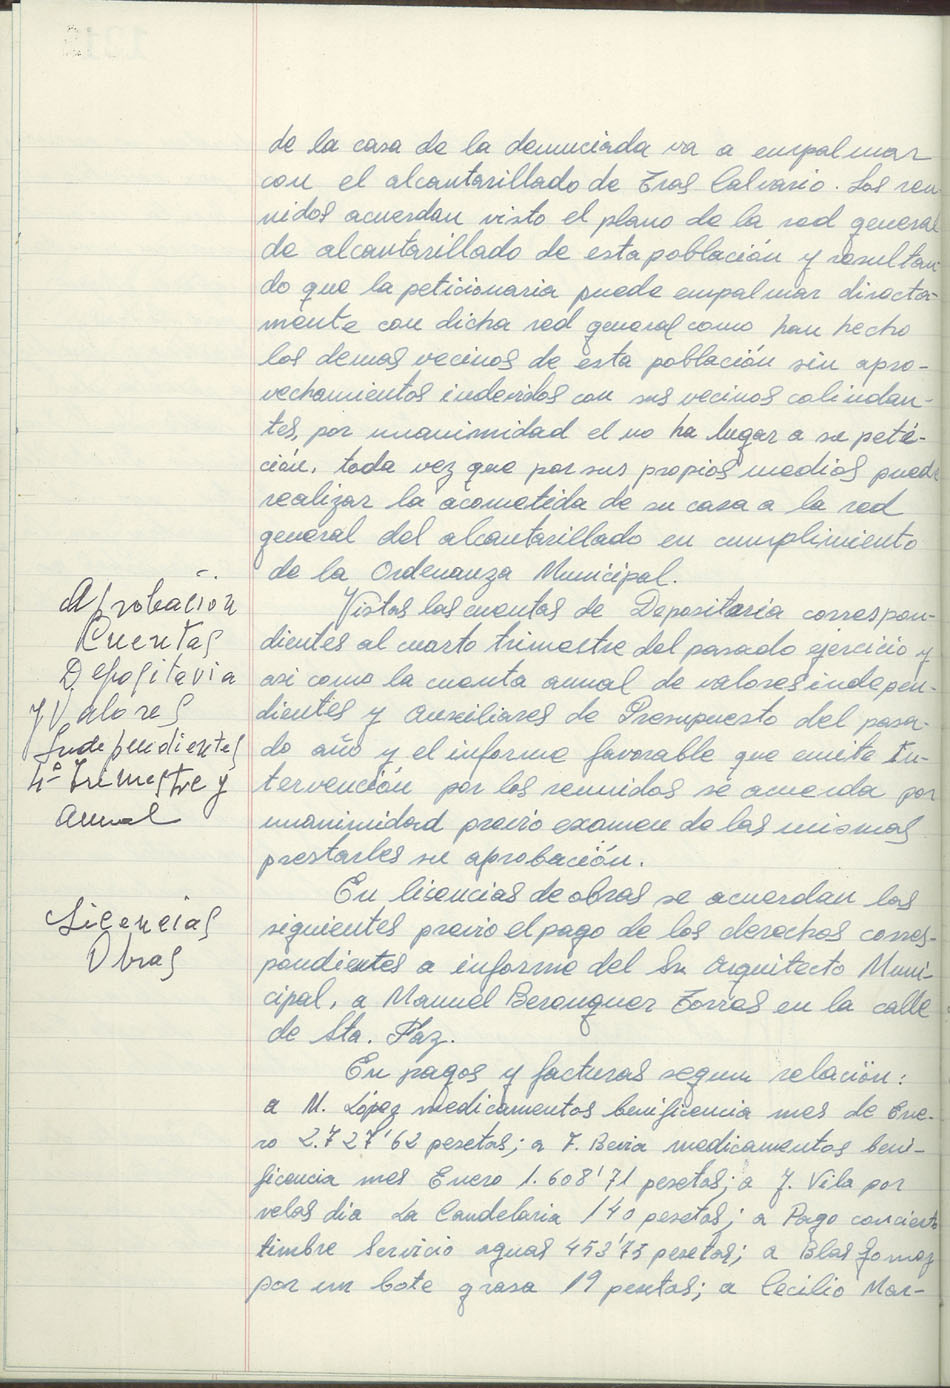 de la casa de la denunciada va a empalmar
con el alcantarillado de Eras Calvario. Los reu-
nidos acuerdan visto el plano de la red general
de alcantarillado de esta población y resultan-
do que la peticionaria puede empalmar directa-
mente con dicha red general como han hecho
los demas vecinos de esta población sin apro-
vechamientos indevidos con sus vecinos colindan-
tes, por unanimidad el no ha lugar a su peti-
ción, toda vez que por sus propios medios puede
realizar la acometida de su casa a la red
general del alcantarillado en cumplimiento
de la Ordenanza Municipal.
Aprobación
Cuentas
Depositaria
y Valores
Independientes
4º Trimestre y
anual
Vistas las cuentas de Depositaria correspon-
dientes al cuarto trimestre del pasado ejercicio y
asi como la cuenta anual de valores indepen-
dientes y Auxiliares de Presupuesto del pasa-
do año y el informe favorable que emite In-
tervención por los reunidos se acuerda por
unanimidad previo examen de las mismas
prestarles su aprobación.
Licencias
Obras
En licencias de obras se acuerdan las
siguientes previo el pago de los derechos corres-
pondientes a informe del Sr. Arquitecto Muni-
cipal, a Manuel Berenguer Torres en la calle
de Sta. Faz.
En pagos y facturas segun relación:
a M. López medicamentos benificencia mes de Ene-
ro 2.727'62 pesetas; a F. Bevia medicamentos beni-
ficencia mes Enero 1.608'71 pesetas; a J. Vila por
velas dia La Candelaria 140 pesetas; a Pago concierto
timbre Servicio aguas 453'75 pesetas; a Blas Gomez
por un bote grasa 19 pesetas; a Cecilio Mar-